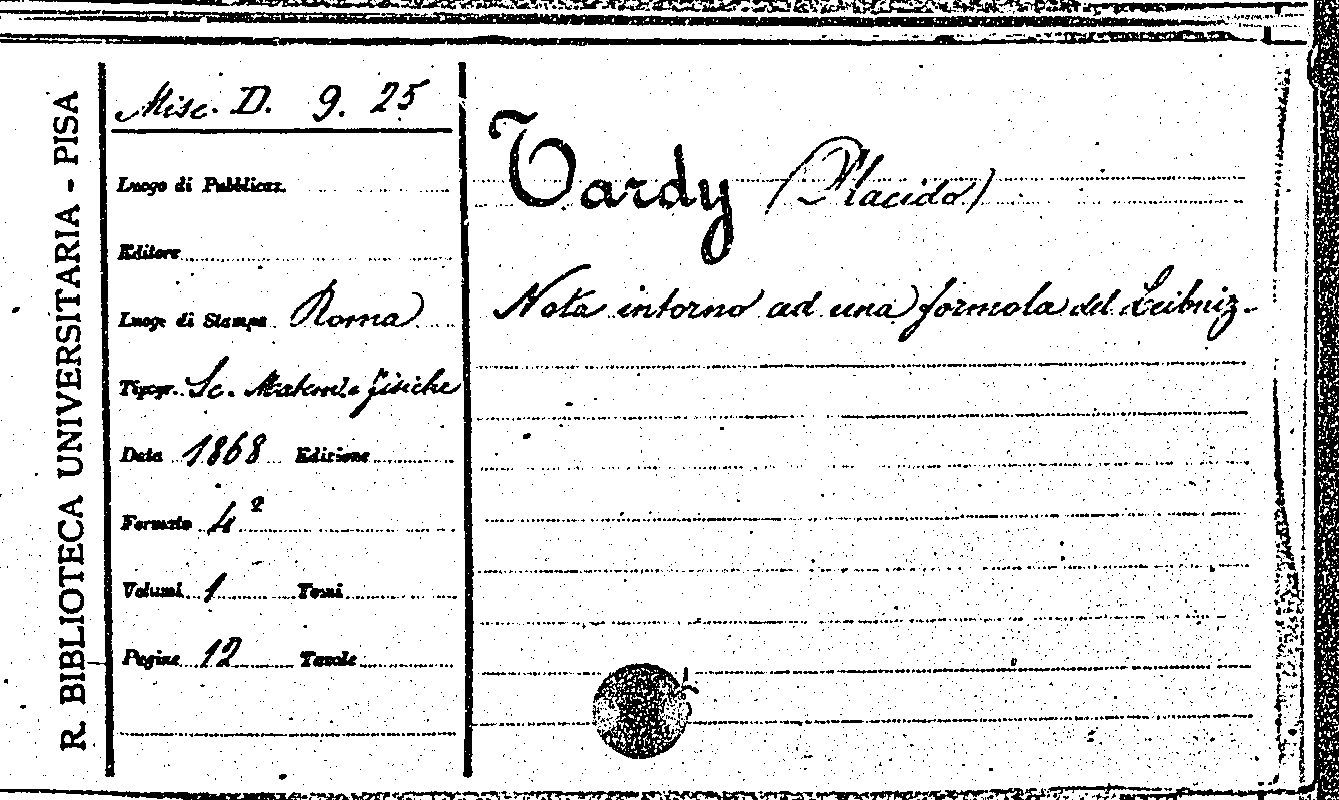 R. BIBLIOTECA UNIVERSITARIA - PISA
Misc. D. 9. 25
Luogo di Pubblicaz.
Editore
Luogo di Stampa Roma
Tipogr. Sc. Matem. e fisiche
Data 1868 Edizione
Formato 4º
Volumi 1 Tomi
Pagine 12 Tavole
Tardy (Placido)
Nota intorno ad una formola del Leibniz.